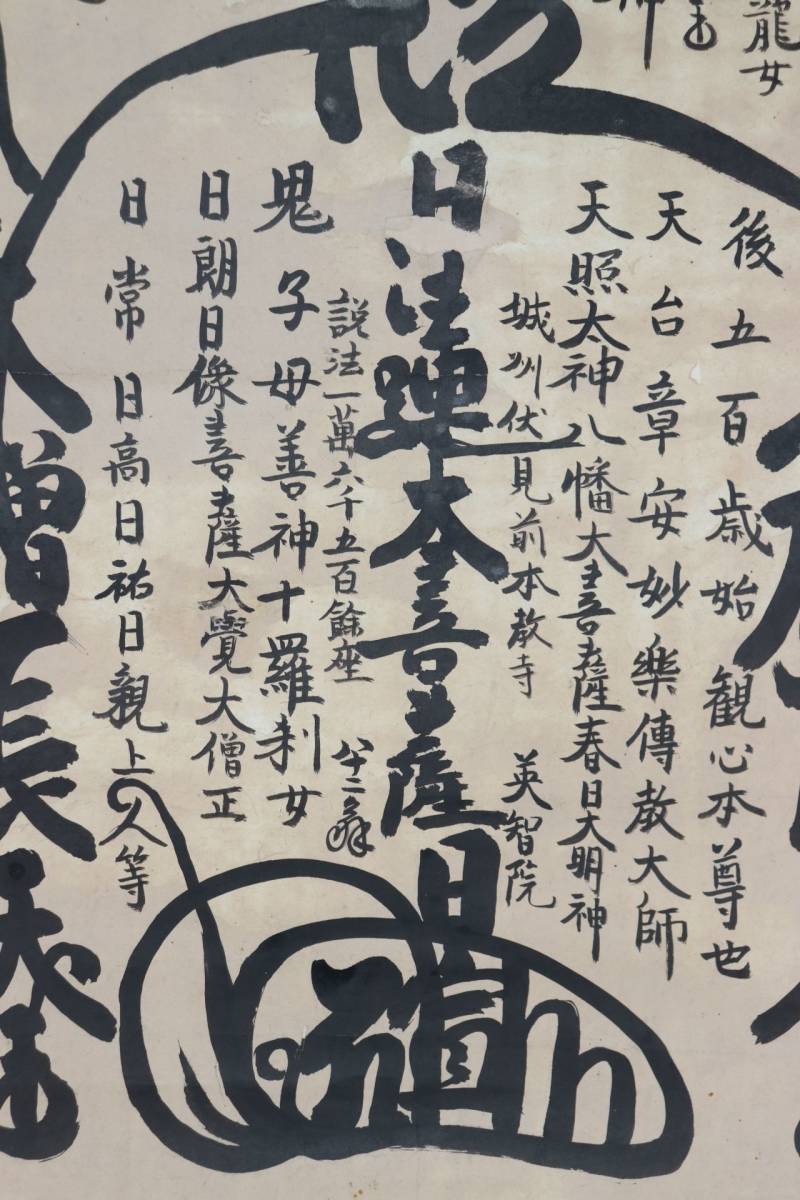 龍女
後五百歳始観心本尊也
天台章安妙樂傳教大師
天照太神八幡大菩薩春日大明神
城州伏見前本教寺 英智院
日法蓮大菩薩
日
説法一萬六千五百餘座 八十二翁
鬼子母善神十羅刹女
日朗日像菩薩大覺大僧正
日常日高日祐日親上人等
大增長天王